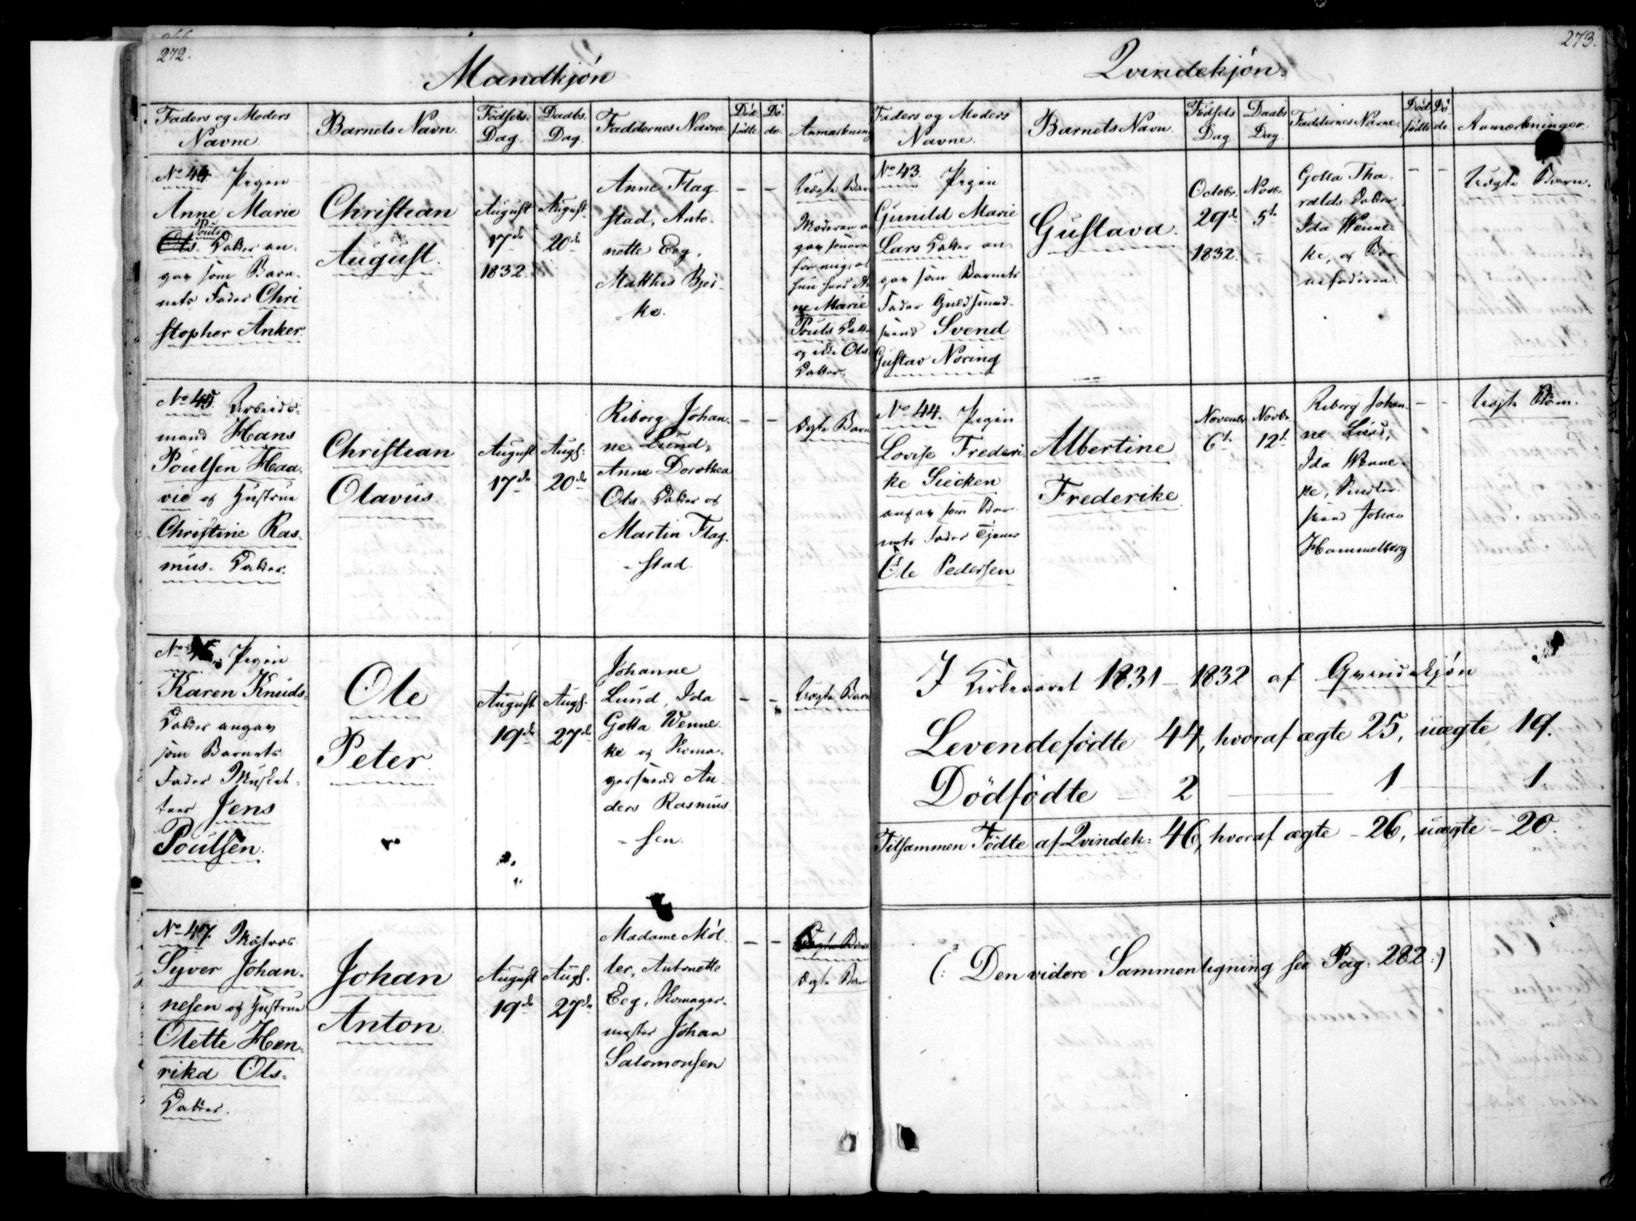 272.
Mandkjön
Faders og Moders
Navne
Barnets Navn.
Födsels
Dag.
Daabs
Dag.
Faddernes Navne
Död
födte
Dö
de
Anmærkning
No 44 Pigen
Anne Marie
Pouls
Ols Datter an-
gav som Barn-
nets Fader Chri
stopher Anker
Christian
August.
August
17de
1832
August
20de
Anne Flag
stad, Anto-
nette Eeg,
Mathhed Bjer-
ke.
– –
Uægte Barn
Moderen
ne Marie
Pouls Datter
og ikke Ols
Datter.
No 45. Arbeids-
mand Hans
Poulsen Haa-
vie og Hustrue
Christine Ras-
mus- Datter.
Christian
Olavus.
August
17de
Augs.
20de
Reborg Johan-
ne Lund,
Anne Dorothea
Ols- Datter og
Martin Flag-
stad
– –
Ægte Barn
No 46. Pigen
Karen Knuds-
Datter angav
som Barnets
Fader Musket-
teer Jens
Poulsen.
Ole
Peter
August
19de
Augs.
27de
Johanne
Lund, Ida
Gotta Wenne-
ke og Skoma-
gersvend An-
ders Rasmus-
sen.
– –
Uægte Barn
No 47. Matros
Syver Johan-
nesen og Hustrue
Olette Hen-
rika Ols-
Datter.
Johan
Anton
August
19de
Augs.
27de
Madame Möl-
ler, Antonette
Eeg, Skomager-
mester Johan
Salomonsen
– –
Uægte Barn
Ægte Barn
273.
Qvindekjön.
Faders og Moders
Navne.
Barnets Navn
Födsels
Dag
Daabs
Dag.
Faddernes Navne.
Död
födte
Dö
de
Anmærkninger.
No 43. Pigen
Gunild Marie
Lars Datter an-
gav som Barnets
Fader Guldsmed-
svend Svend
Gustav Noring
Gustava.
Octobr.
29de
1832.
Novbr.
5te
Gotta Tha-
ralds Datter,
Ida Wenne-
ke, og Bar-
nefaderen
– –
Uægte Barn.
No 44. Pigen
Lovise Frederi-
ke Siecken
angav som Bar-
nets Fader Tjener
Ole Pedersen
Albertine
Frederike
Novembr
6te
Novbr.
12te
Reborg Johan-
ne Lund,
Ida Wenne-
ke, Snedker-
svend Johan
Hammelberg
– –
Uægte Barn.
I Kirkeaaret 1831 – 1832 af Qvindekjön
Levendefödte 44, hvoraf ægte 25, uægte 19.
Dödfödte 2 1 1
Tilsammen Födte af Qvindek: 46, hvoraf ægte – 26, uægte – 20.
(: Den videre Sammenligning see Pag. 282 :)